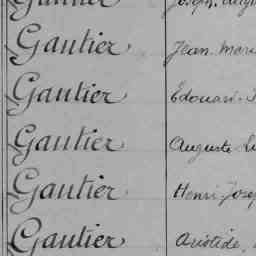 Gautier Joseph
Gautier Jean
Gautier Edouard
Gautier Auguste
Gautier Henri
Gautier Aristide,